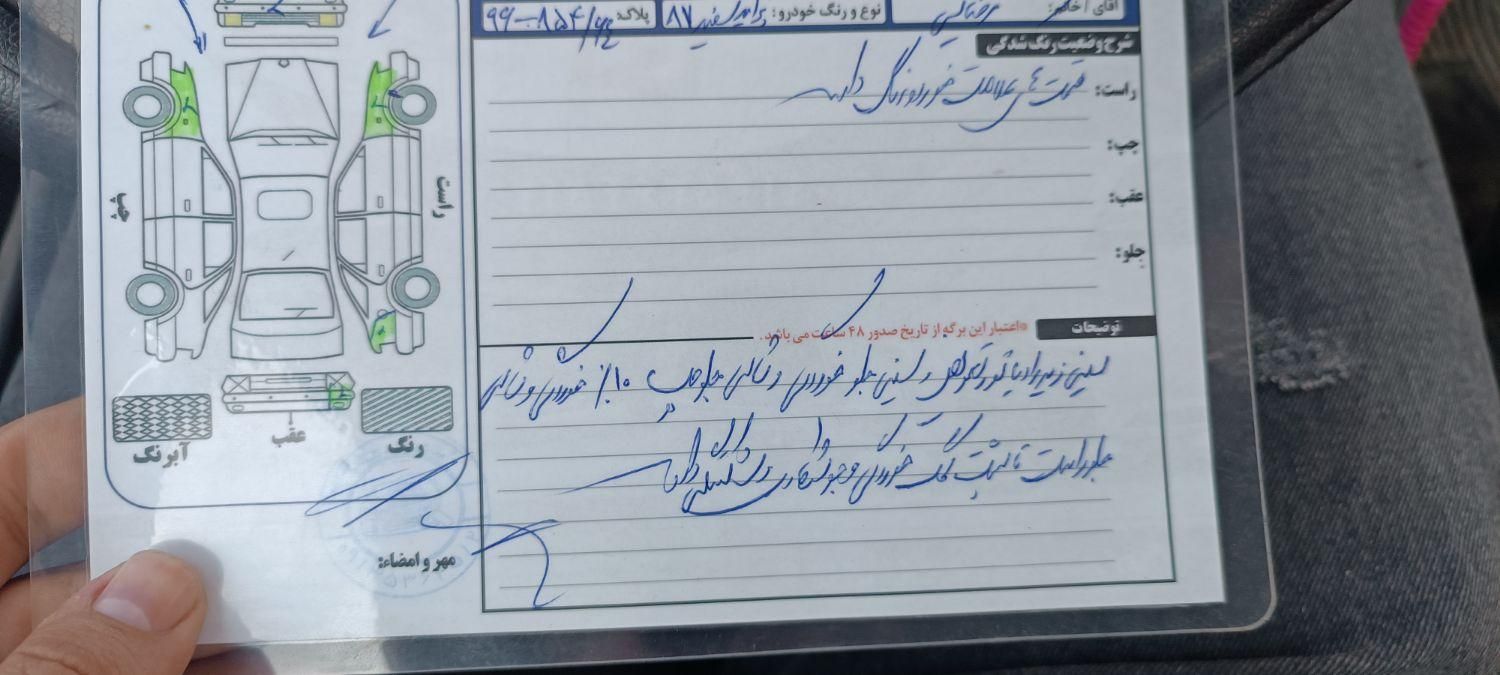 آقای / خانم:
نوع و رنگ خودرو: پراید سفید ۸۷
پلاک:
شرح وضعیت رنگ شدگی
راست: قسمت های علامت خورده رنگ دارد
چپ:
عقب:
جلو:
توضیحات
*اعتبار این برگه از تاریخ صدور ۴۸ ساعت می باشد.
سینی زیر رادیاتور و سینی جلو خوردگی و شاسی جلو چپ ۱۰٪ خوردگی و شاسی
جلو راست تا پشت کمک خوردگی و جوشکاری و دارد
راست
چپ
رنگ
عقب
آبرنگ
مهر و امضاء: